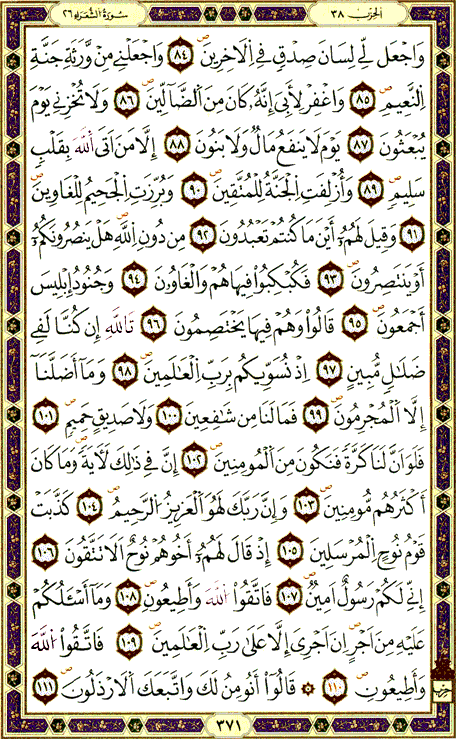 الحزب ٣٨ سورة الشعراء ٢٦
وَاجْعَل لِّے لِسَانَ صِدْقٍ فِے اِ۬لَاخِرِينَ ٨٤ وَاجْعَلْنِے مِنْ وَّرَثَةِ جَنَّةِ
اِ۬لنَّعِيمِ ٨٥ وَاغْفِرْ لِأَبِے إِنَّهُۥ كَانَ مِنَ اَ۬لضَّآلِّينَ ٨٦ وَلَا تُخْزِنِے يَوْمَ
يُبْعَثُونَ ٨٧ يَوْمَ لَا يَنفَعُ مَالٌ وَلَا بَنُونَ ٨٨ إِلَّا مَنَ اَتَى اَ۬للَّهَ بِقَلْبٍ
سَلِيمٍ ٨٩ وَأُزْلِفَتِ اِ۬لْجَنَّةُ لِلْمُتَّقِينَ ٩٠ وَبُرِّزَتِ اِ۬لْجَحِيمُ لِلْغَاوِينَ
٩١ وَقِيلَ لَهُمُۥٓ أَيْنَ مَا كُنتُمْ تَعْبُدُونَ ٩٢ مِن دُونِ اِ۬للَّهِ هَلْ يَنصُرُونَكُمُۥٓ
أَوْ يَنتَصِرُونَ ٩٣ فَكُبْكِبُوا۟ فِيهَا هُمْ وَالْغَاوُۥنَ ٩٤ وَجُنُودُ إِبْلِيسَ
أَجْمَعُونَ ٩٥ قَالُوا۟ وَهُمْ فِيهَا يَخْتَصِمُونَ ٩٦ تَاللَّهِ إِن كُنَّا لَفِے
ضَلَٰلٍ مُّبِينٍ ٩٧ اِذْ نُسَوِّيكُم بِرَبِّ اِ۬لْعَٰلَمِينَ ٩٨ وَمَآ أَضَلَّنَآ
إِلَّا اَ۬لْمُجْرِمُونَ ٩٩ فَمَا لَنَا مِن شَٰفِعِينَ ١٠٠ وَلَا صَدِيقٍ حَمِيمٍ ١٠١
فَلَوَ اَنَّ لَنَا كَرَّةً فَنَكُونَ مِنَ اَ۬لْمُومِنِينَ ١٠٢ إِنَّ فِے ذَٰلِكَ لَأٓيَةً وَمَا كَانَ
أَكْثَرُهُم مُّومِنِينَ ١٠٣ وَإِنَّ رَبَّكَ لَهُوَ اَ۬لْعَزِيزُ اُ۬لرَّحِيمُ ١٠٤ كَذَّبَتْ
قَوْمُ نُوحٍ اِ۬لْمُرْسَلِينَ ١٠٥ إِذْ قَالَ لَهُمُۥٓ أَخُوهُمْ نُوحٌ اَلَا تَتَّقُونَ ١٠٦
إِنِّے لَكُمْ رَسُولٌ اَمِينٌ ١٠٧ فَاتَّقُوا۟ اُ۬للَّهَ وَأَطِيعُونِ ١٠٨ وَمَآ أَسْـَٔلُكُمْ
عَلَيْهِ مِنَ اَجْرٍ اِنَ اَجْرِىَ إِلَّا عَلَىٰ رَبِّ اِ۬لْعَٰلَمِينَ ١٠٩ فَاتَّقُوا۟ اُ۬للَّهَ
وَأَطِيعُونِ ١١٠ ۞ قَالُوٓا۟ أَنُومِنُ لَكَ وَاتَّبَعَكَ اَ۬لَارْذَلُونَ ١١١
حزب
٣٧١